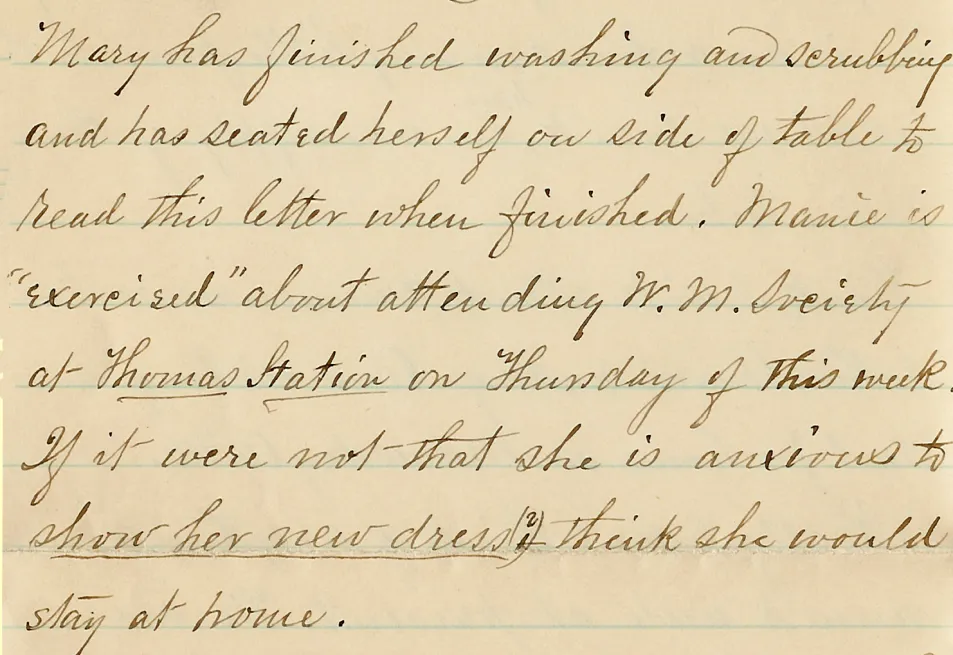 Mary has finished washing and scrubbing
and has seated herself on side of table to
read this letter when finished. Mamie is
"exercised" about attending W. M. Society
at Thomas Station on Thursday of this week.
If it were not that she is anxious to
show her new dress (?) I think she would
stay at home.